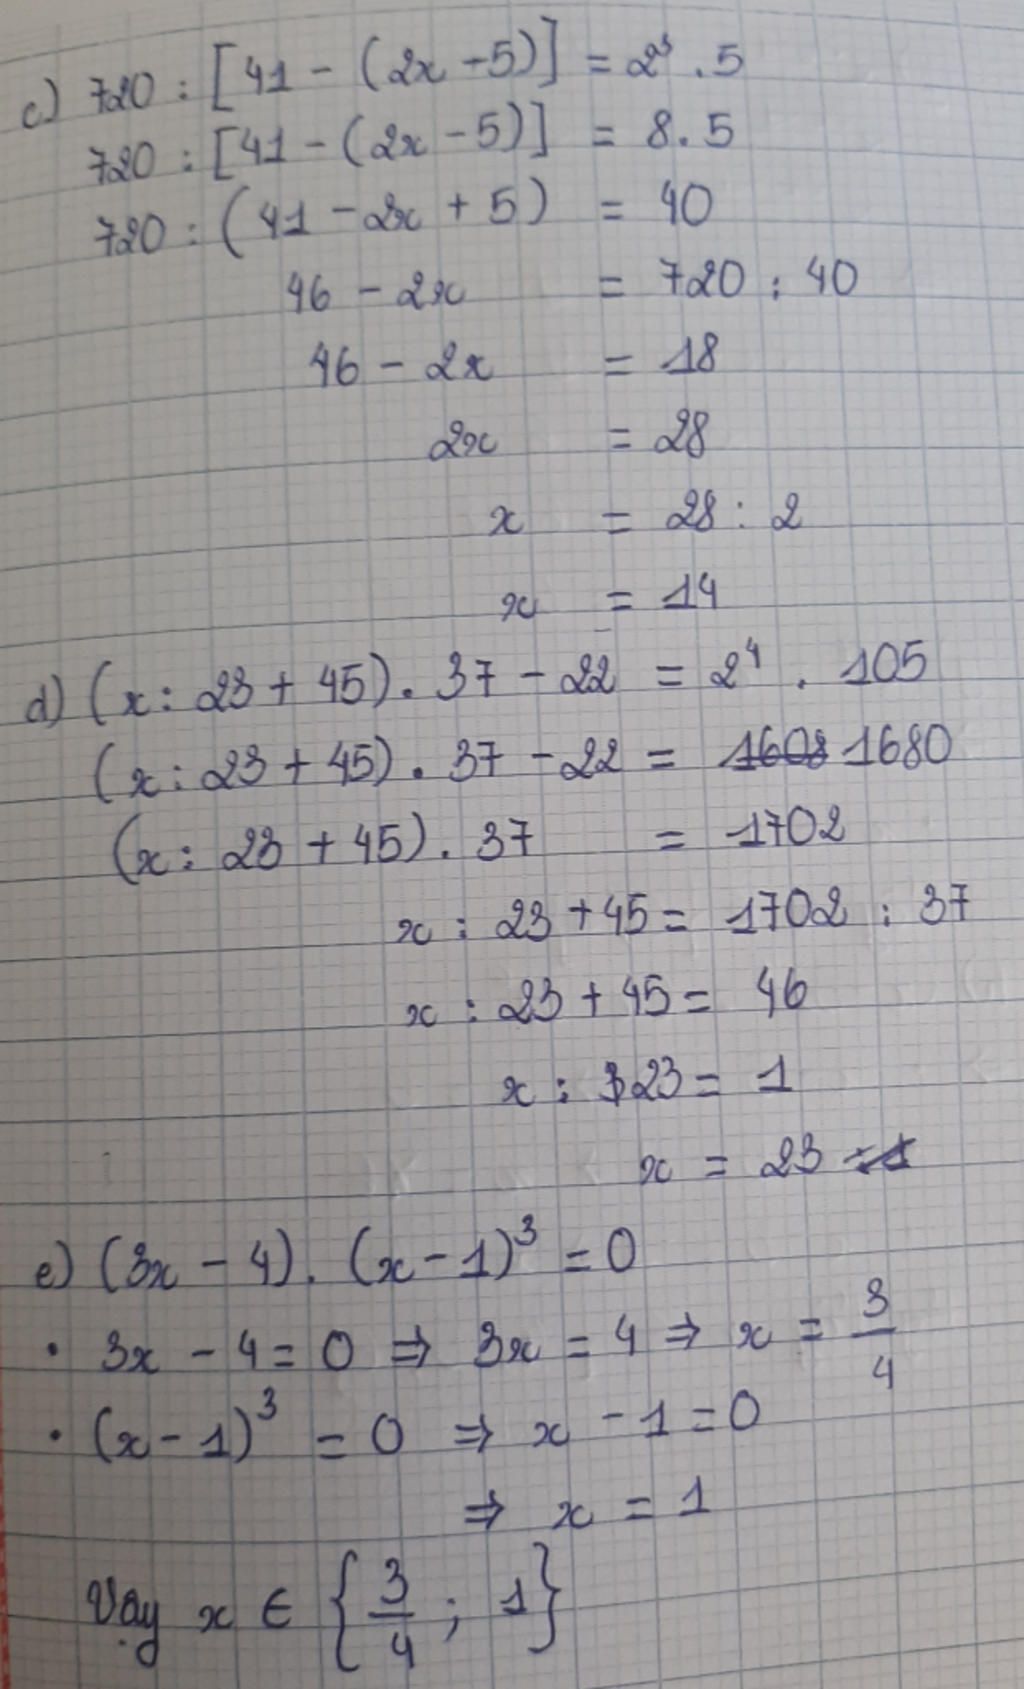 c) 720 : [41 - (2x - 5)] = 2³ . 5
720 : [41 - (2x - 5)] = 8 . 5
720 : (41 - 2x + 5) = 40
46 - 2x = 720 : 40
46 - 2x = 18
2x = 28
x = 28 : 2
x = 14
d) (x : 23 + 45) . 37 - 22 = 2⁴ . 105
(x : 23 + 45) . 37 - 22 = 1608 1680
(x : 23 + 45) . 37 = 1702
x : 23 + 45 = 1702 : 37
x : 23 + 45 = 46
x : 23 = 1
x = 23
e) (3x - 4) . (x - 1)³ = 0
• 3x - 4 = 0 ⇒ 3x = 4 ⇒ x = 3/4
• (x - 1)³ = 0 ⇒ x - 1 = 0
⇒ x = 1
Vậy x ∈ {3/4 ; 1}